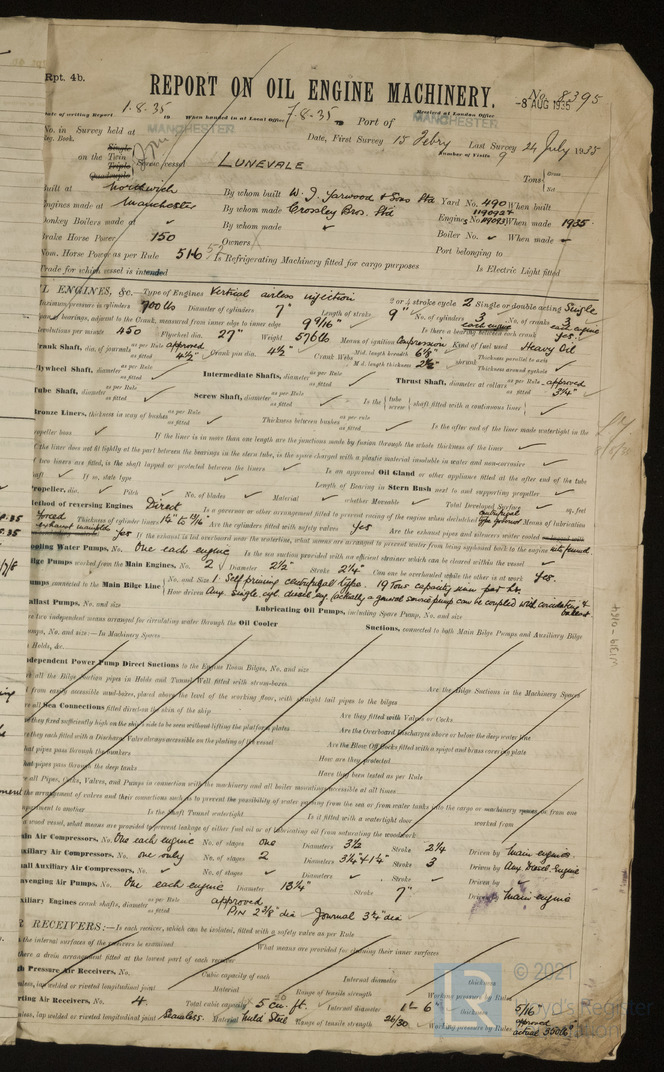 Rpt. 4b.
REPORT ON OIL ENGINE MACHINERY.
No. 8395
-8 AUG 1935
Date of writing Report 1.8.35 19 When handed in at Local Office 7.8.35 Port of MANCHESTER
Received at London Office
No. in Survey held at MANCHESTER Date, First Survey 15 Febry Last Survey 24 July 1935
Reg. Book. Number of Visits 9
on the Single Twin Triple Quadruple Screw vessel LUNEVALE Tons Gross Net
Built at Northwich By whom built W. J. Yarwood & Sons Ltd Yard No. 490 When built
Engines made at Manchester By whom made Crossley Bros. Ltd Engine No. 119092+ 119093 When made 1935
Donkey Boilers made at ✓ By whom made ✓ Boiler No. ✓ When made ✓
Brake Horse Power 150 Owners Port belonging to
Nom. Horse Power as per Rule 516 Is Refrigerating Machinery fitted for cargo purposes Is Electric Light fitted
Trade for which vessel is intended
OIL ENGINES, &c.—Type of Engines Vertical airless injection 2 or 4 stroke cycle 2 Single or double acting Single
Maximum pressure in cylinders 700 lbs Diameter of cylinders 7" Length of stroke 9" No. of cylinders 3 each engine No. of cranks 3 each engine
Span of bearings, adjacent to the Crank, measured from inner edge to inner edge 9 9/16" Is there a bearing between each crank Yes
Revolutions per minute 450 Flywheel dia. 27" Weight 576 lb Means of ignition Compression Kind of fuel used Heavy Oil
Crank Shaft, dia. of journals as per Rule approved as fitted 4½" Crank pin dia. 4½" Crank Webs Mid. length breadth 6⅛" Mid. length thickness 2⅛" shrunk Thickness parallel to axis Thickness around eyehole
Flywheel Shaft, diameter as per Rule as fitted Intermediate Shafts, diameter as per Rule as fitted Thrust Shaft, diameter at collars as per Rule approved as fitted 3¾"
Tube Shaft, diameter as per Rule as fitted Screw Shaft, diameter as per Rule as fitted Is the tube screw shaft fitted with a continuous liner
Bronze Liners, thickness in way of bushes as per Rule as fitted Thickness between bushes as per rule as fitted Is the after end of the liner made watertight in the
propeller boss If the liner is in more than one length are the junctions made by fusion through the whole thickness of the liner
If the liner does not fit tightly at the part between the bearings in the stern tube, is the space charged with a plastic material insoluble in water and non-corrosive
If two liners are fitted, is the shaft lapped or protected between the liners Is an approved Oil Gland or other appliance fitted at the after end of the tube
shaft If so, state type Length of Bearing in Stern Bush next to and supporting propeller
Propeller, dia. Pitch No. of blades Material whether Moveable Total Developed Surface sq. feet
Method of reversing Engines Direct Is a governor or other arrangement fitted to prevent racing of the engine when declutched centrifugal type governor Means of lubrication
forced Thickness of cylinder liners Are the cylinders fitted with safety valves Yes Are the exhaust pipes and silencers water cooled
exhaust manifolds Yes If the exhaust is led overboard near the waterline, what means are arranged to prevent water being syphoned back to the engine
Cooling Water Pumps, No. One each engine Is the sea suction provided with an efficient strainer which can be cleared within the vessel
Bilge Pumps worked from the Main Engines, No. 2 Diameter 2½" Stroke 2¼" Can one be overhauled while the other is at work Yes.
Pumps connected to the Main Bilge Line No. and Size 1 Self priming centrifugal type. 19 Tons capacity per hr.
How driven Aux. Single cyl. diesel eng (actually a general service pump can be coupled with circulating & ballast
Ballast Pumps, No. and size Lubricating Oil Pumps, including Spare Pump, No. and size
Are two independent means arranged for circulating water through the Oil Cooler Suctions, connected to both Main Bilge Pumps and Auxiliary Bilge
Pumps, No. and size:—In Machinery Spaces
In Holds, &c.
Independent Power Pump Direct Suctions to the Engine Room Bilges, No. and size
Are all the Bilge Suction pipes in Holds and Tunnel Well fitted with strum-boxes Are the Bilge Suctions in the Machinery Spaces
led from easily accessible mud-boxes, placed above the level of the working floor, with straight tail pipes to the bilges
Are all Sea Connections fitted direct on the skin of the ship Are they fitted with Valves or Cocks
Are they fixed sufficiently high on the ship's side to be seen without lifting the platform plates Are the Overboard Discharges above or below the deep water line
Are they each fitted with a Discharge Valve always accessible on the plating of the vessel Are the Blow Off Cocks fitted with a spigot and brass covering plate
What pipes pass through the bunkers How are they protected
What pipes pass through the deep tanks Have they been tested as per Rule
Are all Pipes, Cocks, Valves, and Pumps in connection with the machinery and all boiler mountings accessible at all times
Is the arrangement of valves and their connections such as to prevent the possibility of water passing from the sea or from water tanks into the cargo or machinery spaces, or from one
compartment to another Is the Shaft Tunnel watertight Is it fitted with a watertight door worked from
If a wood vessel, what means are provided to prevent leakage of either fuel oil or of lubricating oil from saturating the woodwork
Main Air Compressors, No. One each engine No. of stages one Diameters 3½ Stroke 2¼ Driven by Main engines
Auxiliary Air Compressors, No. one only No. of stages 2 Diameters 3¼" & 1¼" Stroke 3 Driven by Aux. Diesel Engine
Small Auxiliary Air Compressors, No. No. of stages Diameters Stroke Driven by
Scavenging Air Pumps, No. One each engine Diameter 13¼" Stroke 7" Driven by Main engine
Auxiliary Engines crank shafts, diameter as per Rule approved as fitted PIN 2⅜" dia Journal 3¾" dia
AIR RECEIVERS:—Is each receiver, which can be isolated, fitted with a safety valve as per Rule
Can the internal surfaces of the receivers be examined What means are provided for cleaning their inner surfaces
Is there a drain arrangement fitted at the lowest part of each receiver
High Pressure Air Receivers, No. Cubic capacity of each Internal diameter thickness
Seamless, lap welded or riveted longitudinal joint Material Range of tensile strength Working pressure by Rules
Starting Air Receivers, No. 4. Total cubic capacity 5 cu. ft. Internal diameter 1'- 6" thickness 5/16
Seamless, lap welded or riveted longitudinal joint Seamless. Material Mild Steel Range of tensile strength 26/30 Working pressure by Rules approved actual 350 lb
W1319-0174
© 2021
Lloyd's Register